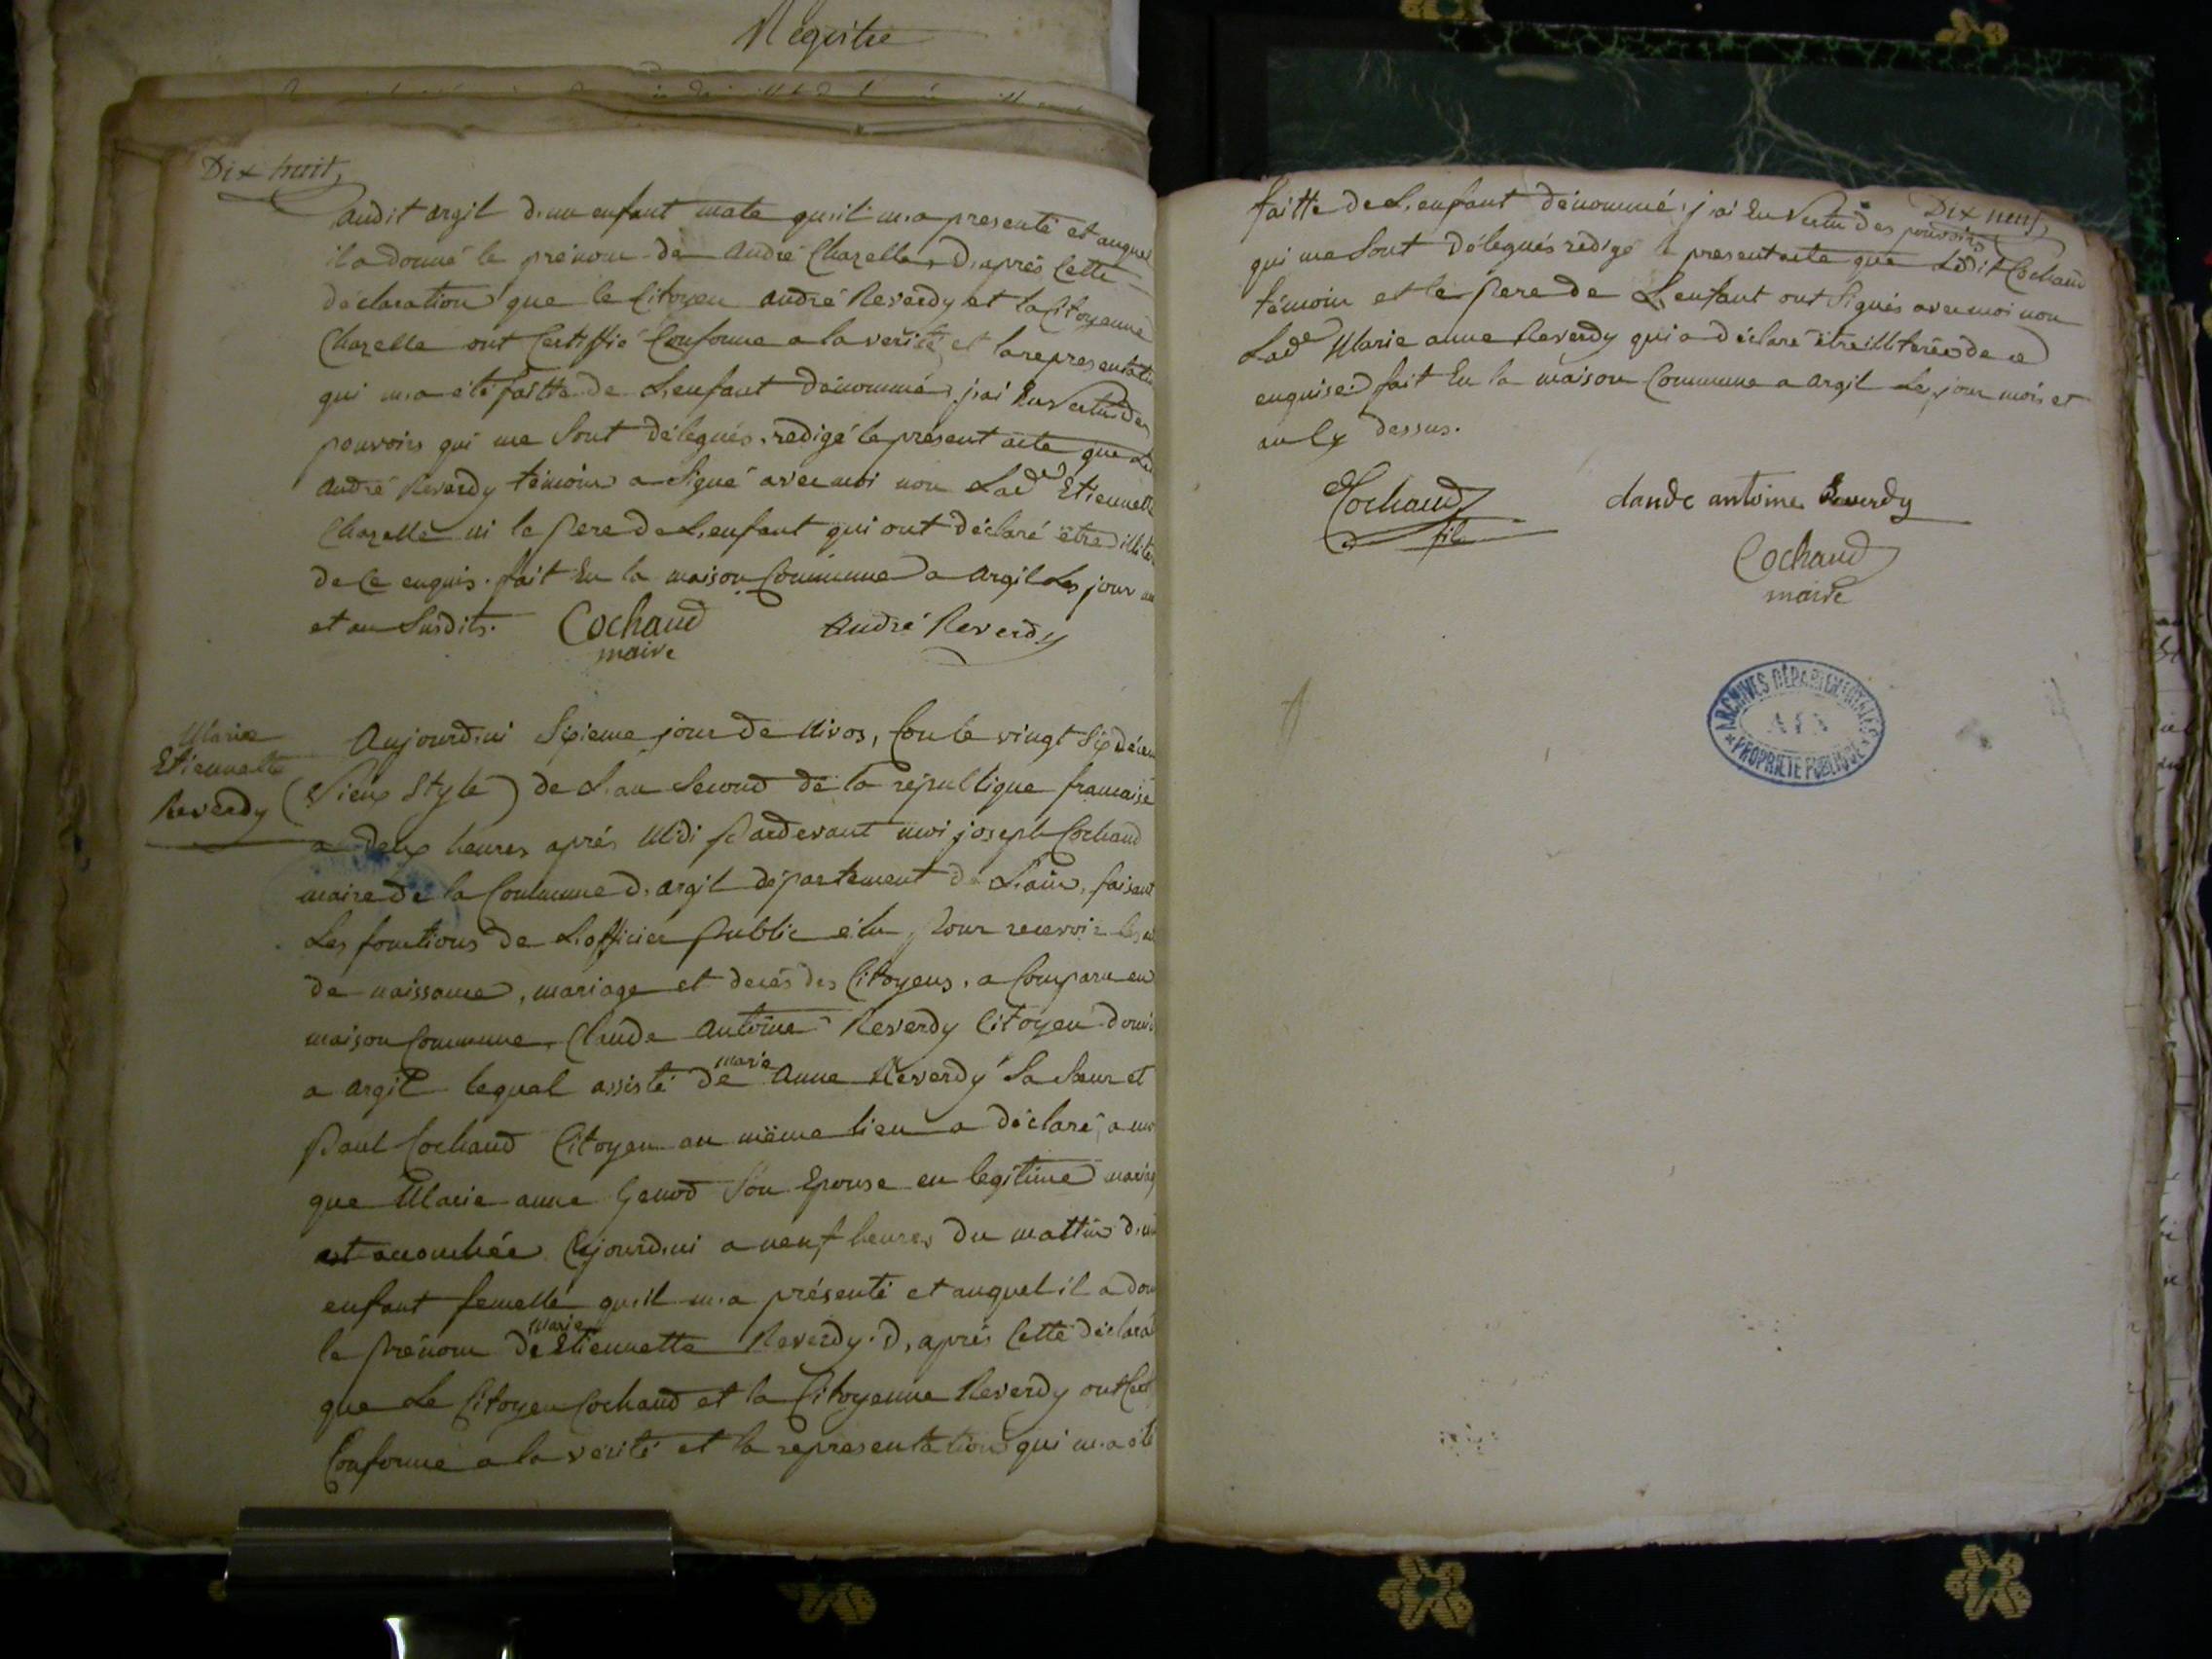 Registre
Dix huit,
audit argil d'un enfant male qu'il m'a presenté et auquel
il a donné le prénom de André Chazelle, d'après Cette
déclaration que le Citoyen andré Reverdy et la Citoyenne
Chazelle ont Certiffié Conforme a la verité, et la representation
qui m'a été faitte de L'enfant dénommé, j'ai En Vertu des
pouvoirs qui me Sont délegués, redigé le présent acte que Led
André Reverdy témoin a Signé avec moi non Lade Etiennette
Chazelle ni le Pere de L'enfant qui ont déclaré être illite
de Ce enquis. fait En la maison Commune a Argil Les jour
et an Susdits. Cochaud André Reverdy
maire
Marie
Etiennette
Reverdy
Aujourd'ui Sixieme jour de Nivos, (ou le vingt Six décem
Vieux Style) de L'an Second de la république francaise
a deux heures après Midi Pardevant moi joseph Cochaud
maire de la Commune d'argil département de L'ain, faisant
Les fonctions de L'officier Public élu Pour recevoir les
de naissance, mariage et decés des Citoyens, a Comparu en
maison Commune, Claude Antoine Reverdy Citoyen domi
a Argil lequel assisté de marie Anne Reverdy Sa Sœur et
Paul Cochaud Citoyen au même lieu a déclaré, a moi
que Marie anne Genod Son Epouse en legitime mariag
est accouchée Cejourd'ui a neuf heures du mattin d'un
enfant femelle qu'il m'a présenté et auquel il a don
le Prénom de Marie Etiennette Reverdy. d'après Cette déclara
que Le Citoyen Cochaud et la Citoyenne Reverdy ont Cert
Conforme a la vérité et la representation qui m'a été
Dix neuf,
faitte de L'enfant dénommé, j'ai En Vertu des pouvoirs
qui me Sont délegués redigé le present acte que Ledit Cochaud
témoin et le Pere de L'enfant ont Signés avec moi non
Lade Marie anne Reverdy qui a déclaré être illiterée de ce
enquise. fait En la maison Commune a argil Les jour mois et
an Cy dessus.
Cochaud claude antoine Reverdy
fils
Cochaud
maire
ARCHIVES DÉPARTEMENTALES
AIN
PROPRIÉTÉ PUBLIQUE